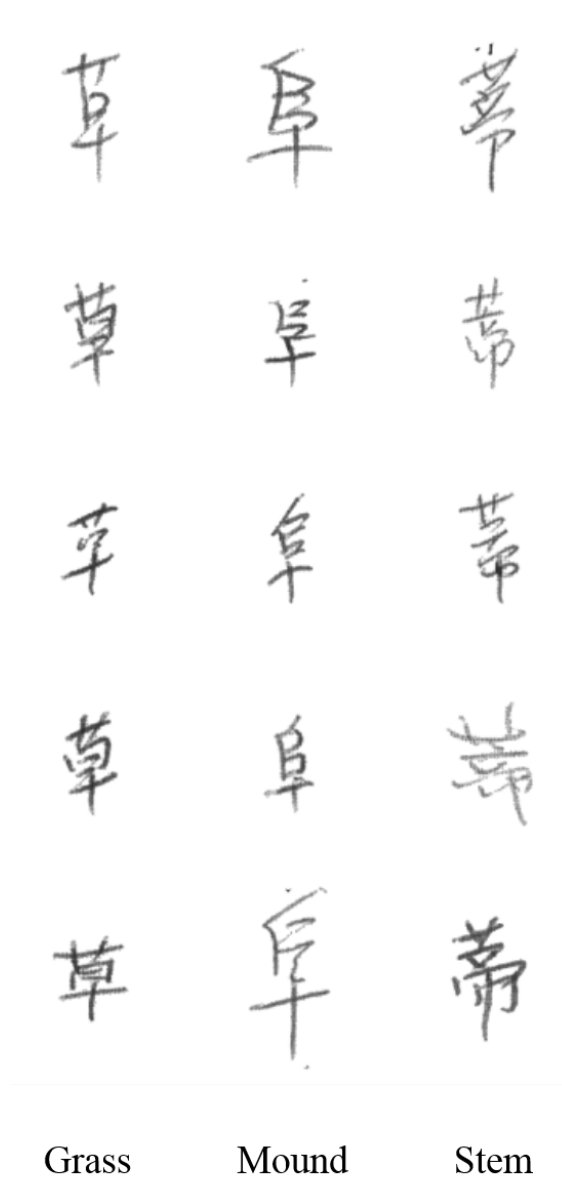 草 阜 蒂
草 阜 蒂
草 阜 蒂
草 阜 蒂
草 阜 蒂
Grass Mound Stem